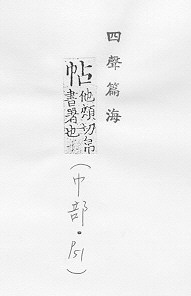 四聲篇海
帖他頰切帛
書署也
(巾部·P51)